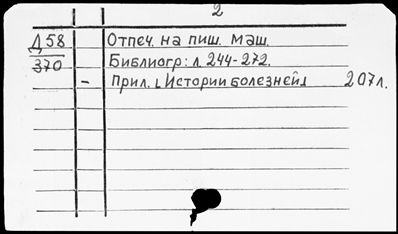 2
Д58 Отпеч. на пиш. маш.
370 Библиогр: л. 244-272.
– Прил. [Истории болезней] 207л.